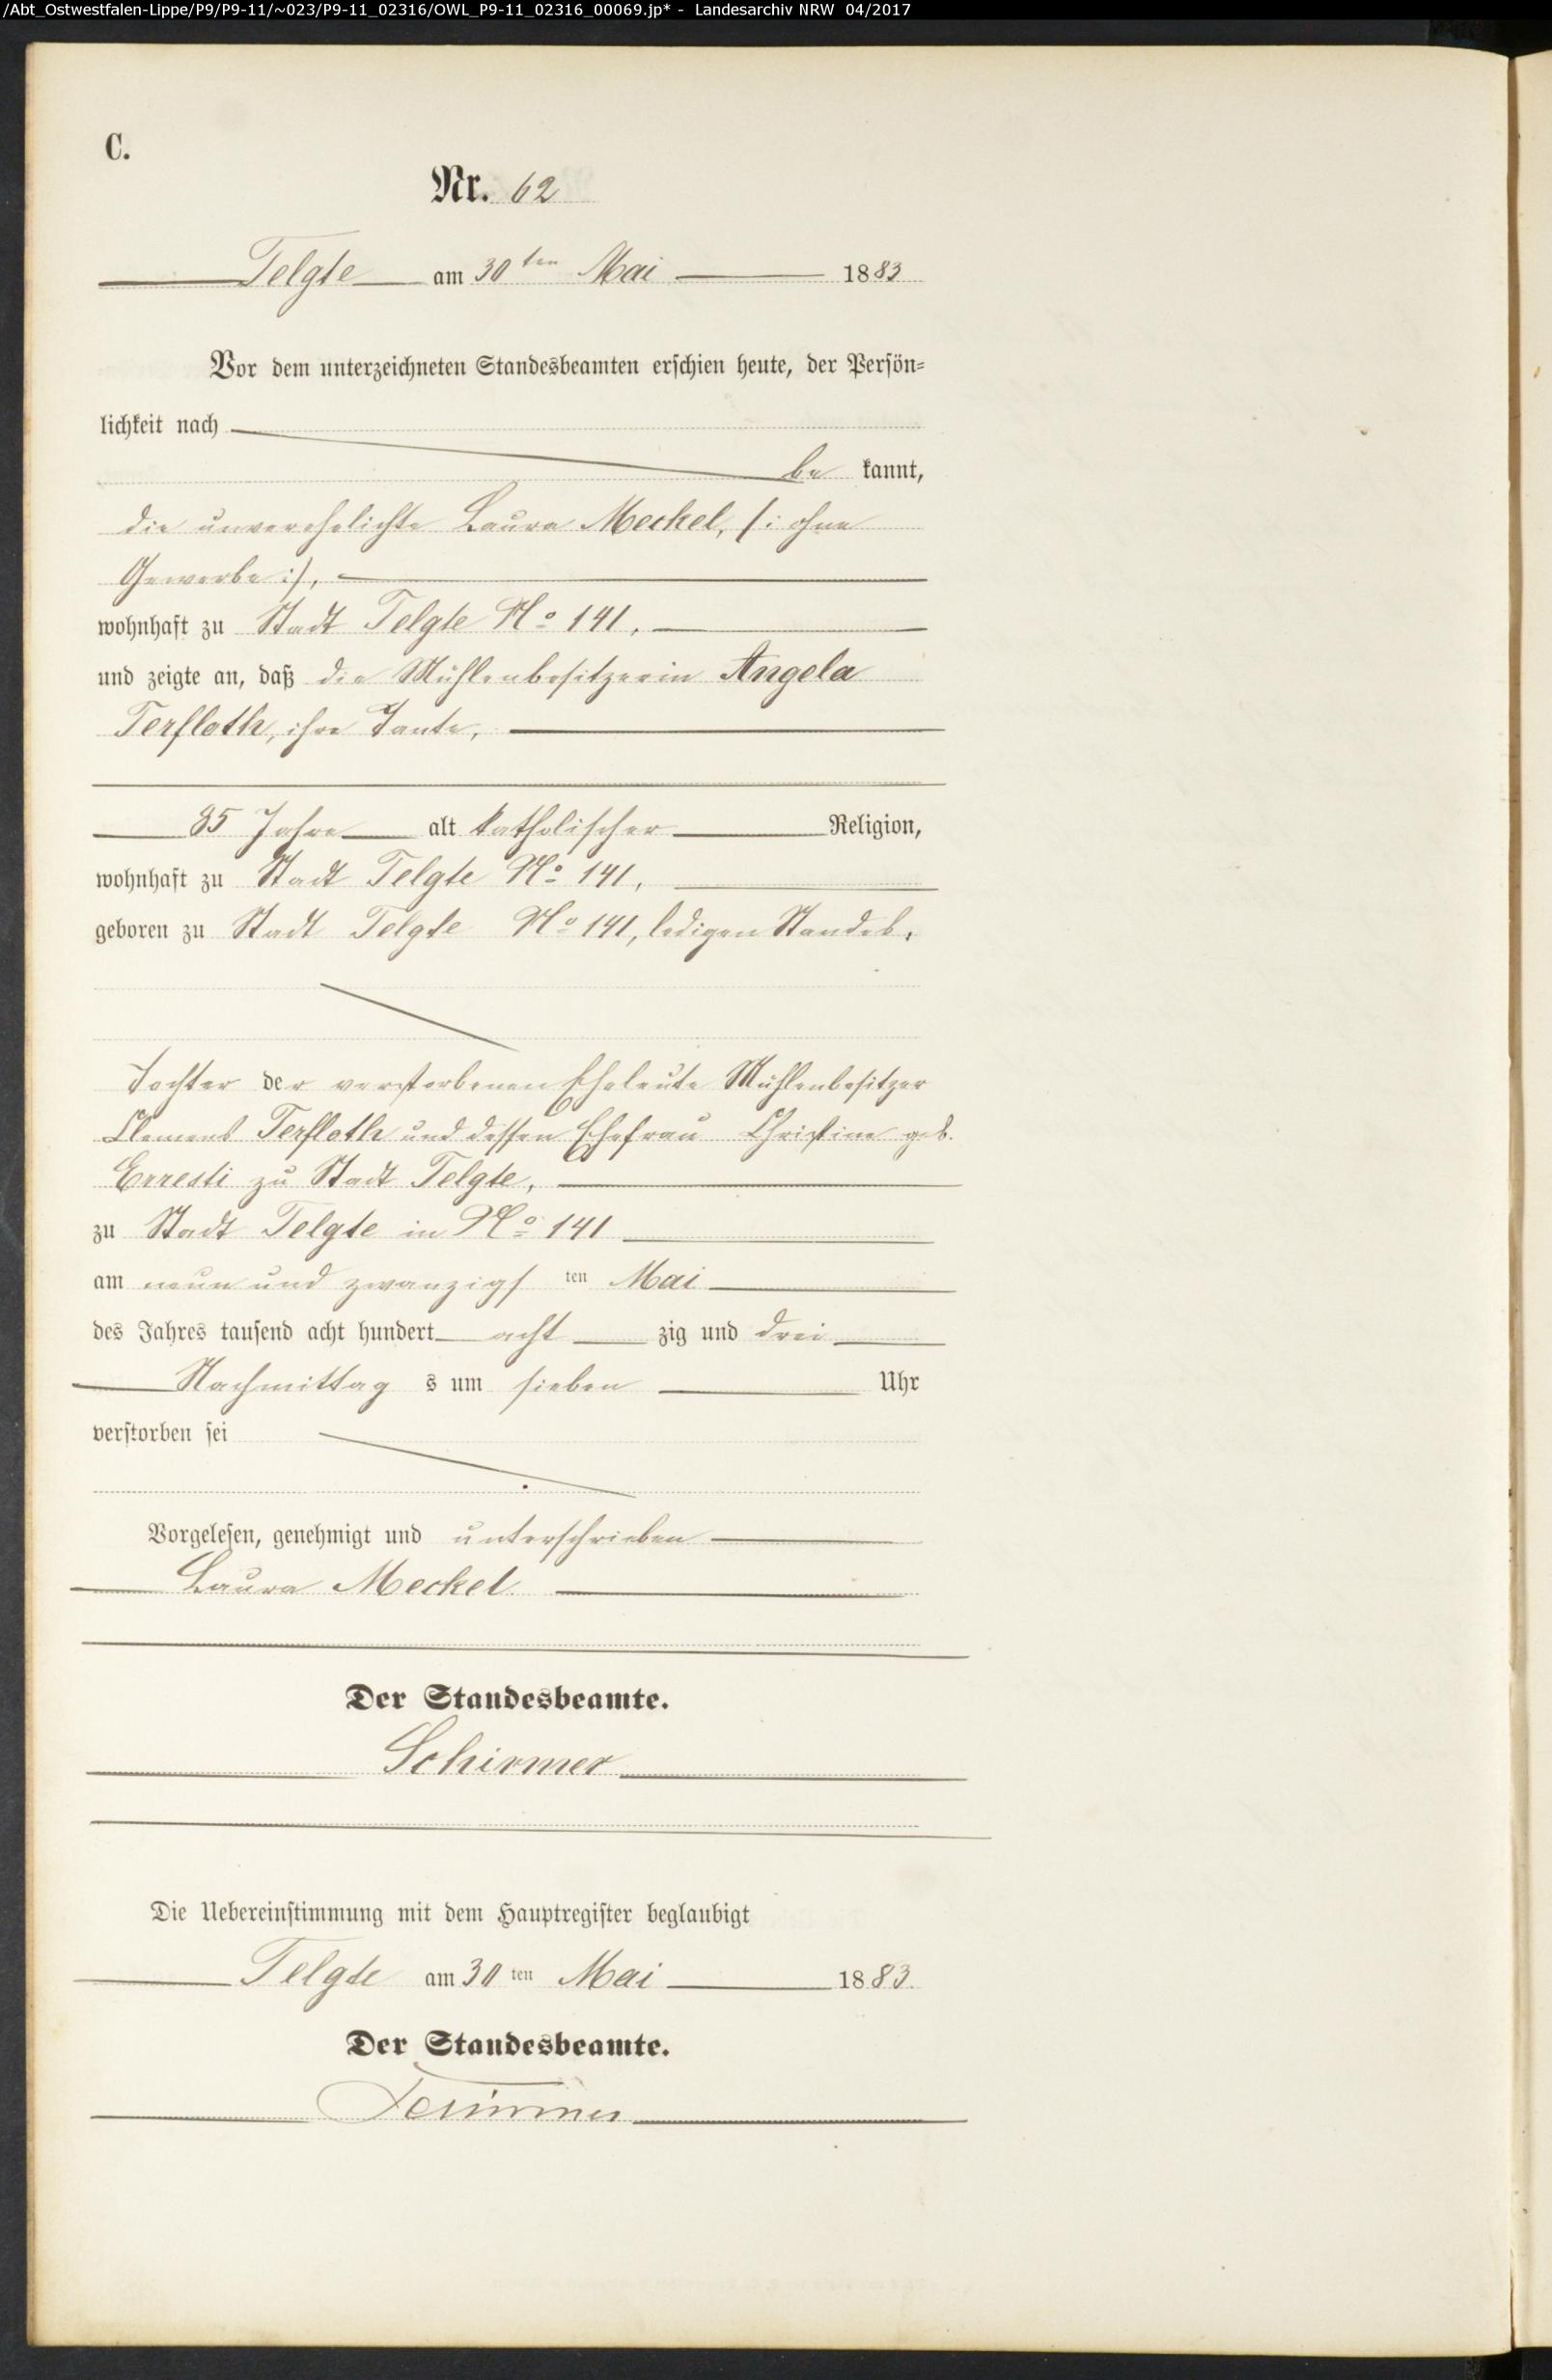 /Abt_Ostwestfalen-Lippe/P9/P9-11/~023/P9-11_02316/OWL_P9-11_02316_00069.jp* - Landesarchiv NRW 04/2017
C.
Nr. 62
Telgte am 30ten Mai 1883
Vor dem unterzeichneten Standesbeamten erschien heute, der Persön=
lichkeit nach
be kannt,
die unverehelichte Laura Meckel, (: ohne
Gewerbe :),
wohnhaft zu Stadt Telgte No 141,
und zeigte an, daß die Mühlenbesitzerin Angela
Terfloth, ihre Tante,
85 Jahre alt katholischer Religion,
wohnhaft zu Stadt Telgte No 141,
geboren zu Stadt Telgte No 141, ledigen Standes,
Tochter der verstorbenen Eheleute Mühlenbesitzer
Clemens Terfloth und dessen Ehefrau Christine geb.
zu Stadt Telgte,
zu Stadt Telgte in No 141
am neun und zwanzigs ten Mai
des Jahres tausend acht hundert acht zig und drei
Nachmittag s um sieben Uhr
verstorben sei
Vorgelesen, genehmigt und unterschrieben
Laura Meckel
Der Standesbeamte.
Schirmer
Die Uebereinstimmung mit dem Hauptregister beglaubigt
Telgte am 30 ten Mai 1883.
Der Standesbeamte.